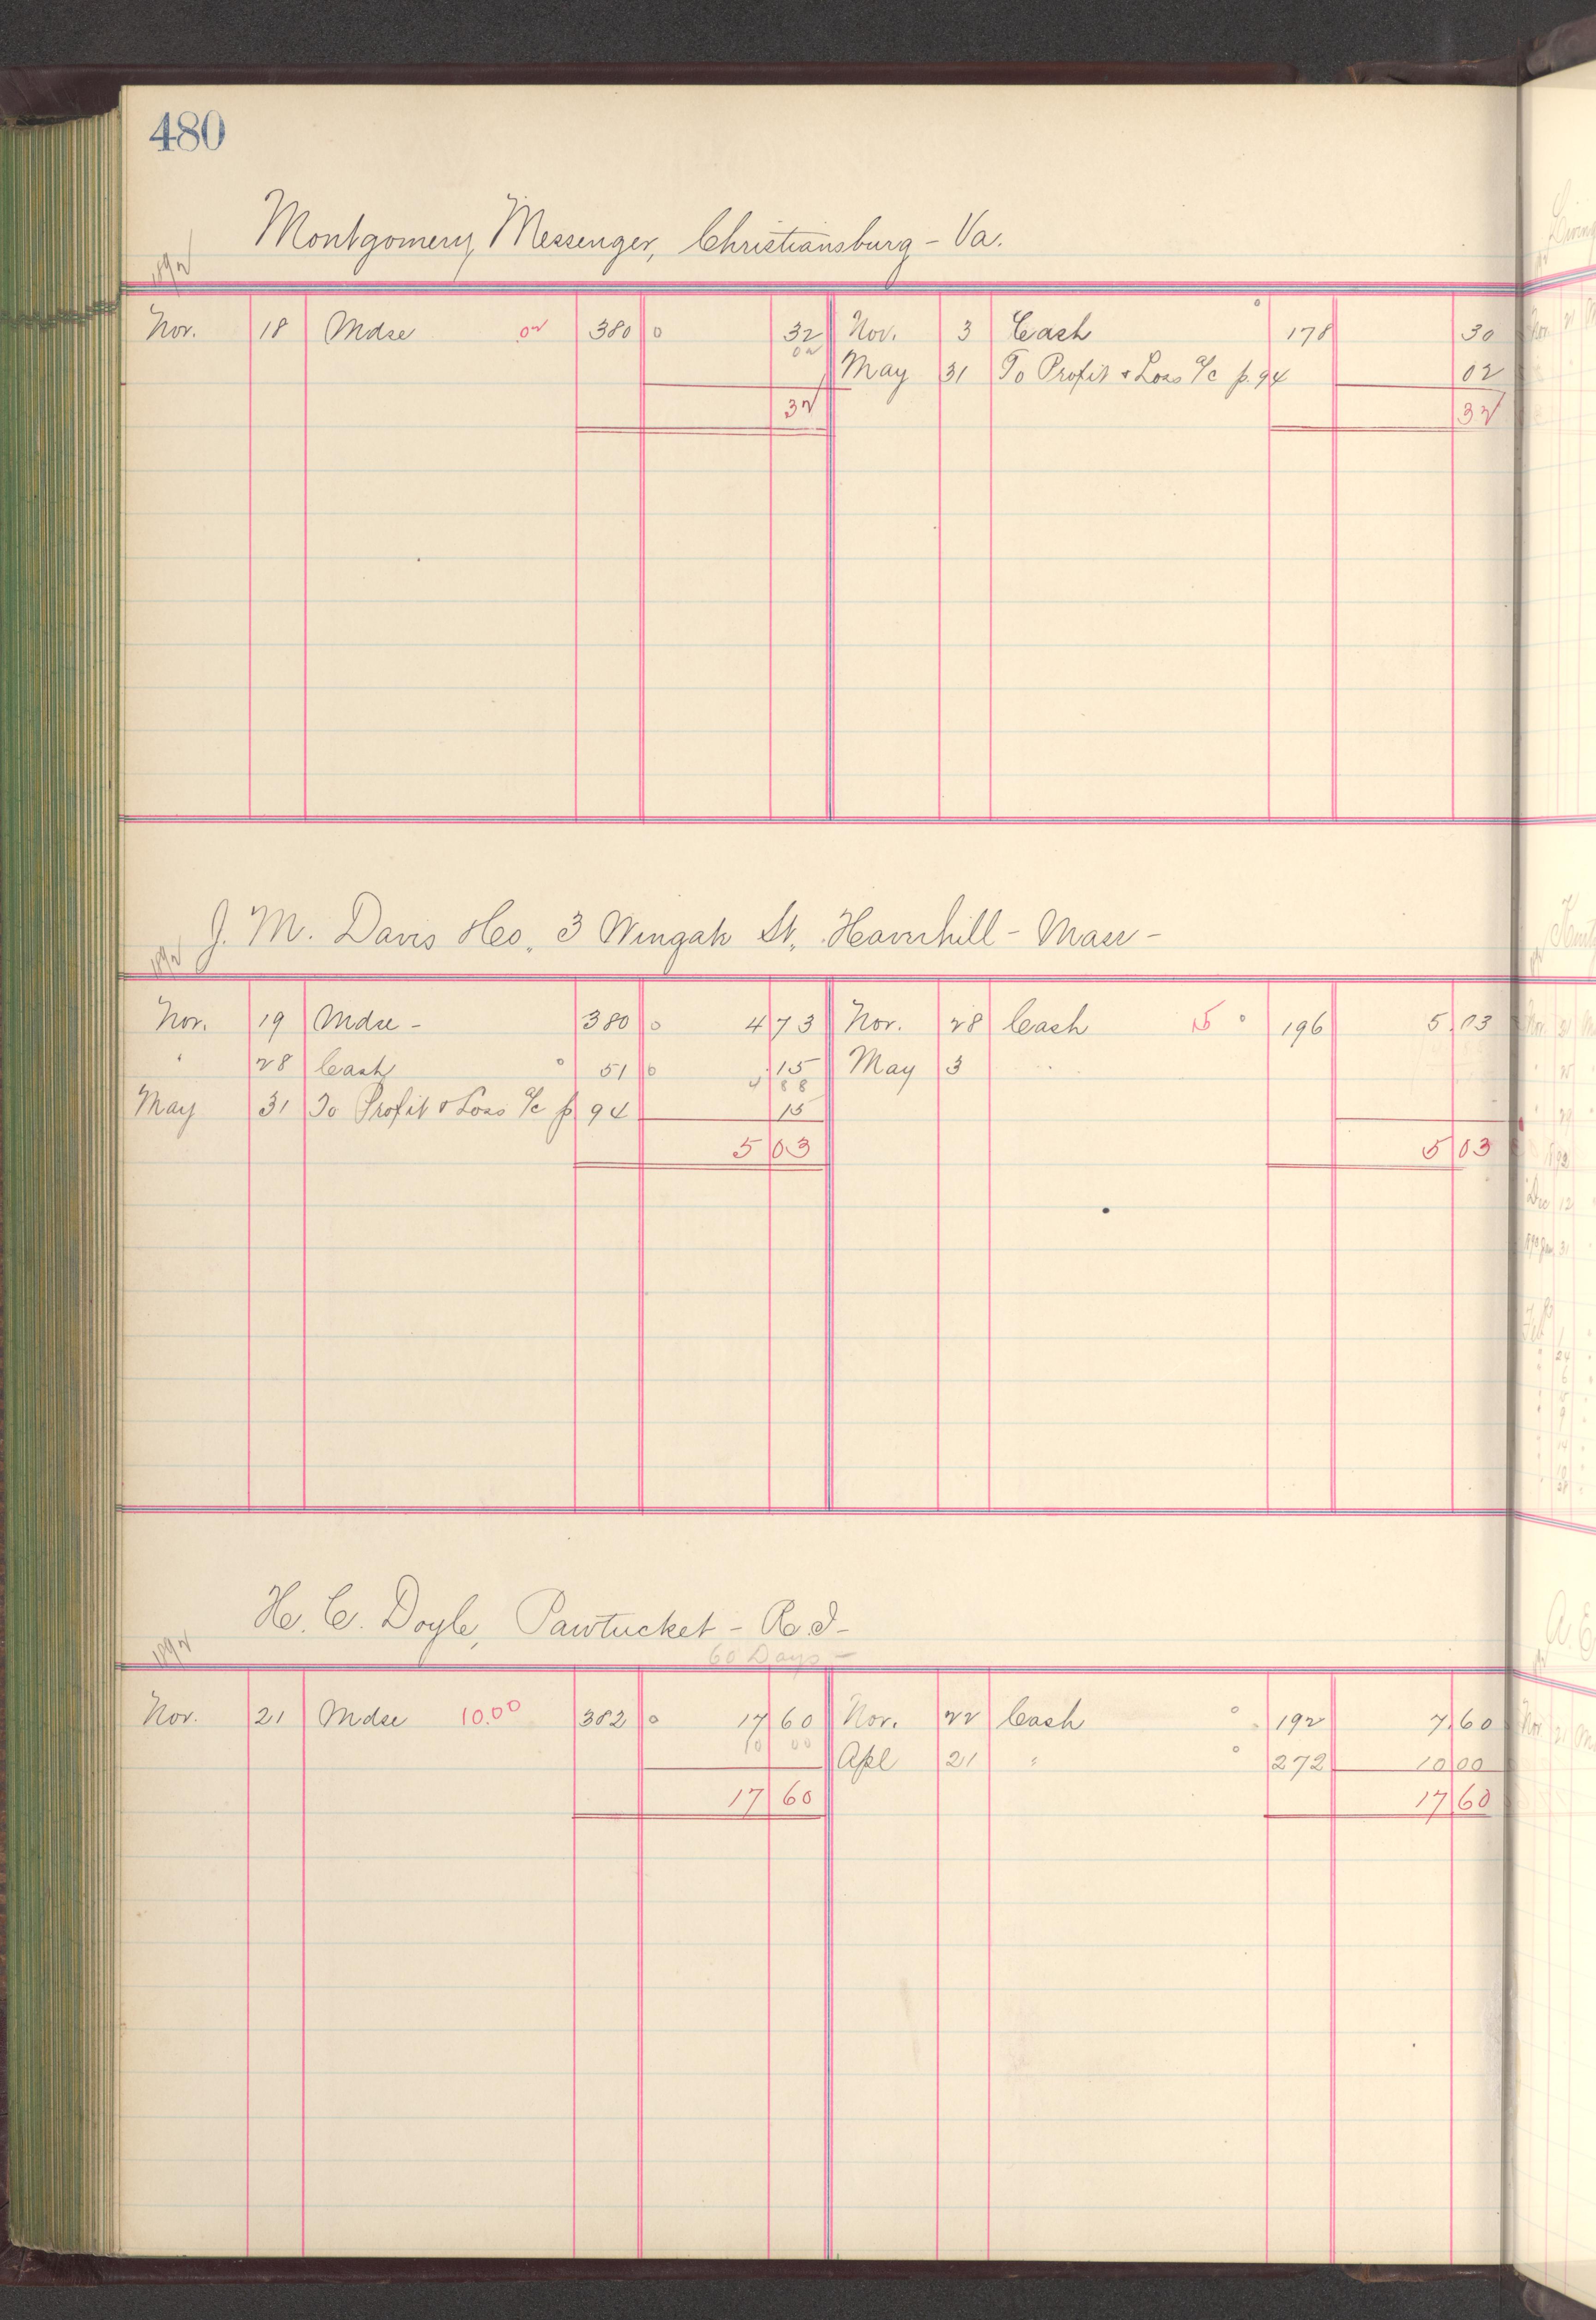 480
Montgomery Messenger, Christiansburg - Va.
1892
Nov. 18 Mdse 02 380 0 32 Nov. 3 Cash 0 178 30
02 May 31 To Profit & Loss a/c p. 94 02
32 32
J. M. Davis Co, 3 Wingate St, Haverhill - Mass -
1892
Nov. 19 Mdse - 380 0 4 73 Nov. 28 Cash 15 0 196 5 03
" 28 Cash 0 51 0 15 May 3
4 88
May 31 To Profit & Loss a/c p 94 15
5 03 5 03
H. C. Doyle, Pawtucket - R.I -
60 Days -
1892
Nov. 21 Mdse 10.00 382 0 17 60 Nov. 22 Cash 0 192 7 60
10 00 Apl 21 " 0 272 10 00
17 60 17 60